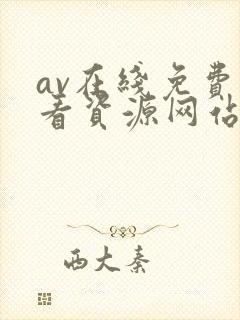 av在线免费
看资源网站
西大秦